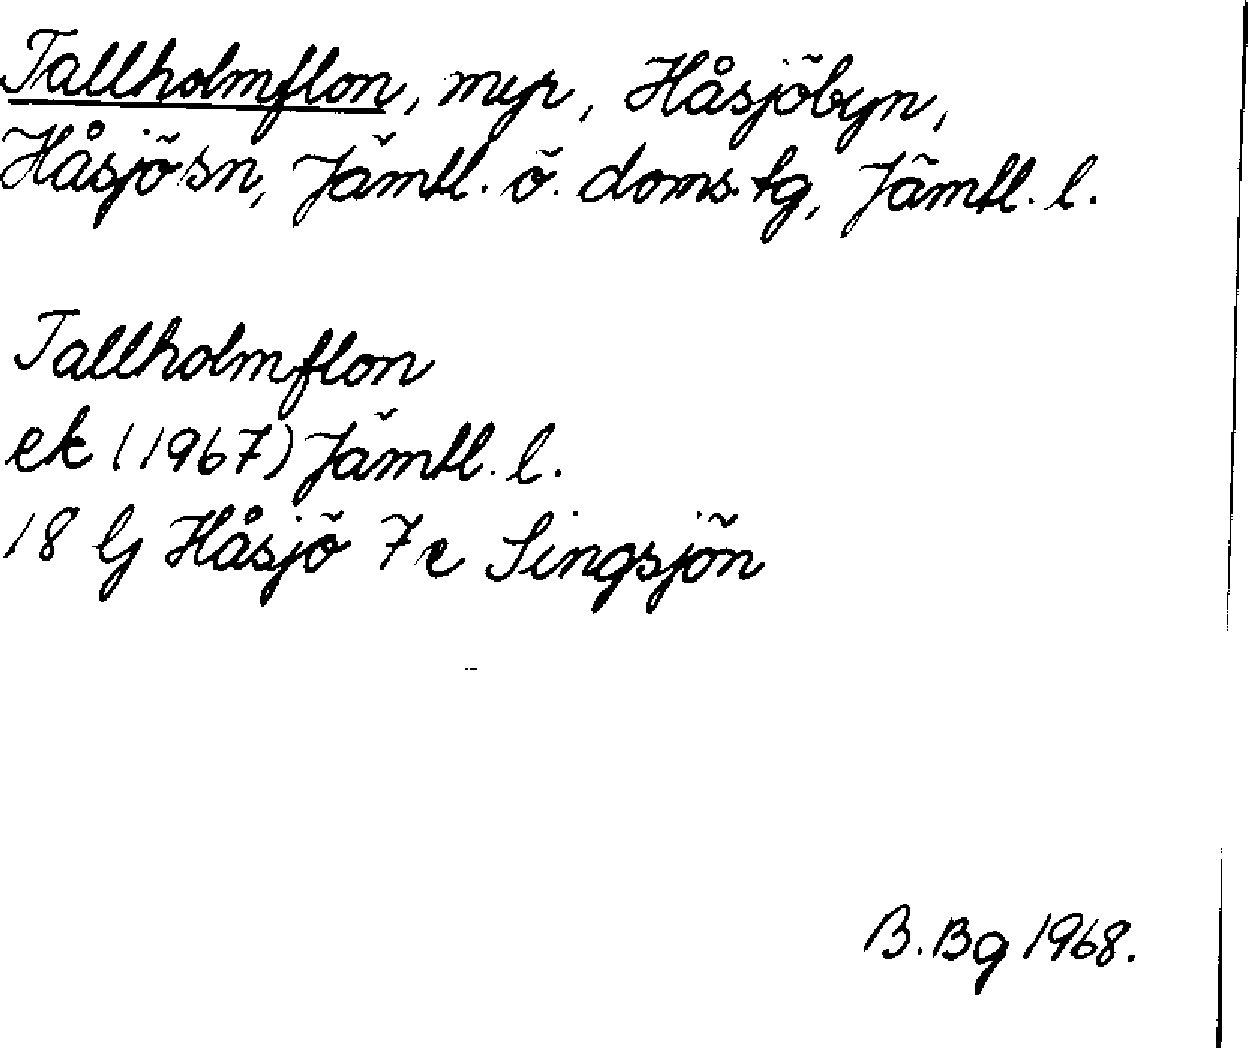 Tallholmflon, myr, Håsjöbyn,
Håsjö sn, Jämtl. ö. doms. tg, Jämtl. l.
Tallholmflon
ek (1967) Jämtl. l.
18 G Håsjö 7 e Singsjön
B. Bg 1968.